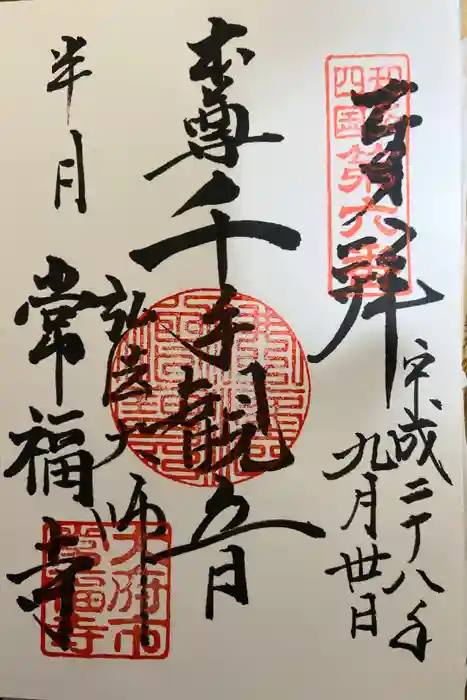 知多
四国
第六番
奉拝
平成二十八年
九月卅日
本尊千手観音
弘法大師
半月
常福寺
大府市
常福寺